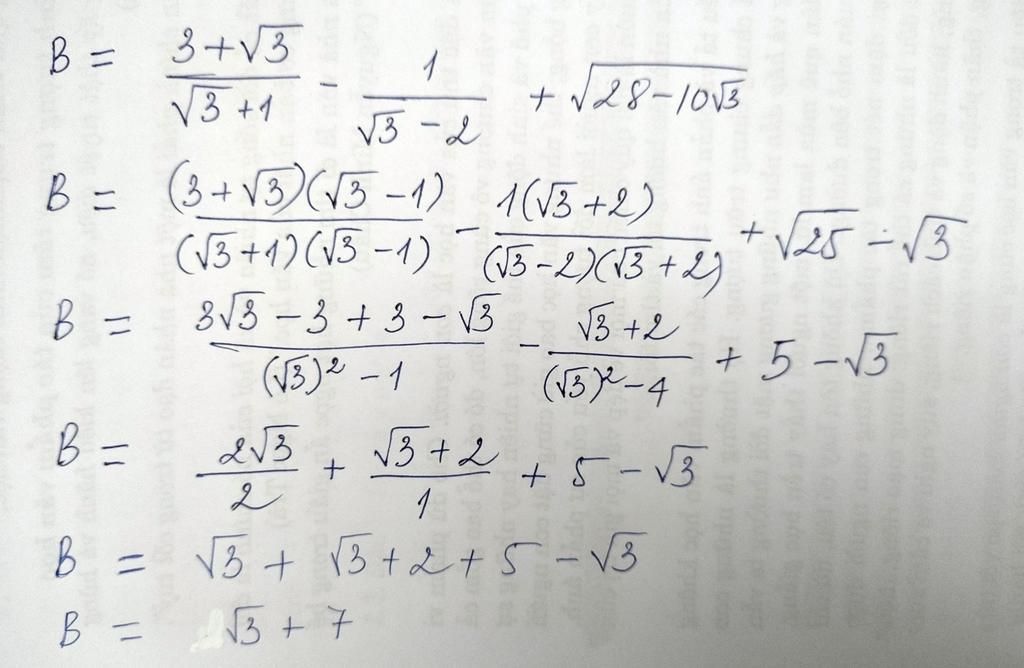 B = \frac{3+\sqrt{3}}{\sqrt{3}+1} - \frac{1}{\sqrt{3}-2} + \sqrt{28-10\sqrt{3}}
B = \frac{(3+\sqrt{3})(\sqrt{3}-1)}{(\sqrt{3}+1)(\sqrt{3}-1)} - \frac{1(\sqrt{3}+2)}{(\sqrt{3}-2)(\sqrt{3}+2)} + \sqrt{25} - \sqrt{3}
B = \frac{3\sqrt{3}-3+3-\sqrt{3}}{(\sqrt{3})^2-1} - \frac{\sqrt{3}+2}{(\sqrt{3})^2-4} + 5 - \sqrt{3}
B = \frac{2\sqrt{3}}{2} + \frac{\sqrt{3}+2}{1} + 5 - \sqrt{3}
B = \sqrt{3} + \sqrt{3} + 2 + 5 - \sqrt{3}
B = \sqrt{3} + 7